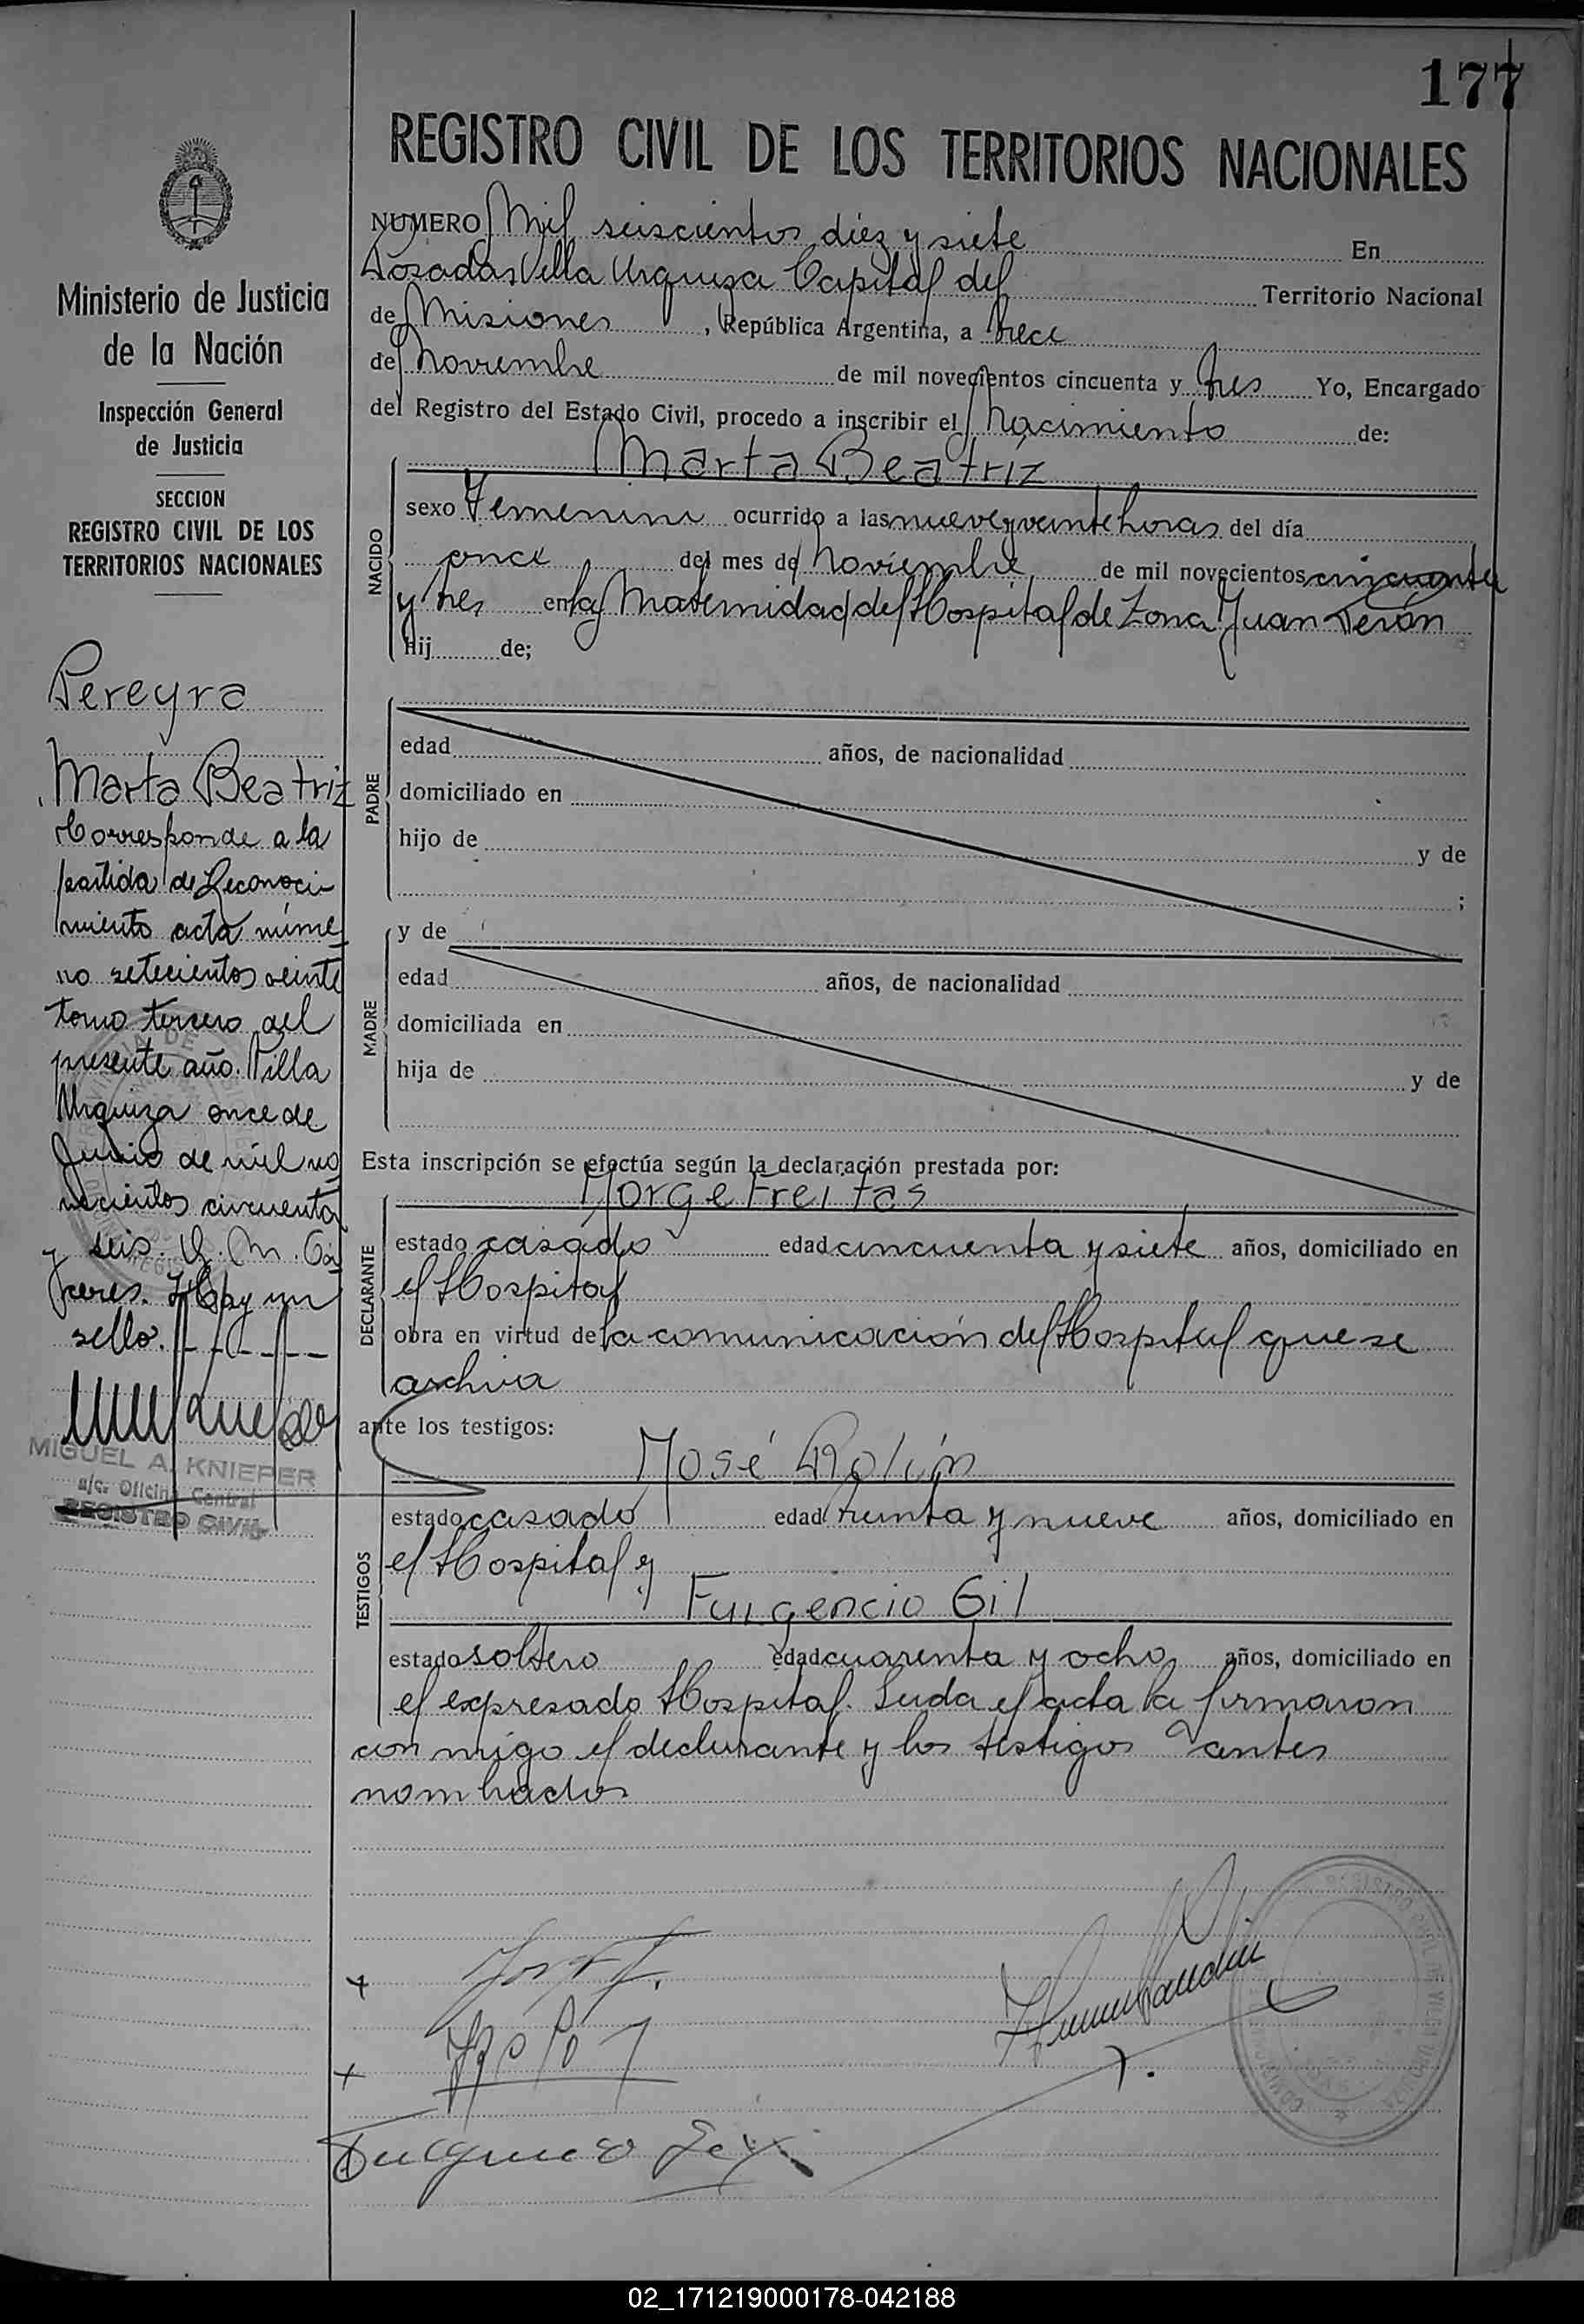 177
REGISTRO CIVIL DE LOS TERRITORIOS NACIONALES
NUMERO Mil seiscientos diez y siete En
Posadas Villa Urquiza Capital del Territorio Nacional
de Misiones, República Argentina, a trece
de Noviembre de mil novecientos cincuenta y tres Yo, Encargado
del Registro del Estado Civil, procedo a inscribir el Nacimiento de:
Marta Beatriz
NACIDO
sexo Femenino ocurrido a las nueve y veinte horas del día
once del mes de Noviembre de mil novecientos cincuenta
y tres en la Maternidad del Hospital de Zona Juan Terán
Hij de;
PADRE
edad años, de nacionalidad
domiciliado en
hijo de y de
;
MADRE
y de
edad años, de nacionalidad
domiciliada en
hija de y de
Esta inscripción se efectúa según la declaración prestada por:
Jorge Freitas
DECLARANTE
estado casado edad cincuenta y siete años, domiciliado en
el Hospital
obra en virtud de la comunicación del Hospital que se
archiva
ante los testigos:
José Rolón
TESTIGOS
estado casado edad treinta y nueve años, domiciliado en
el Hospital y
Fulgencio Gil
estado soltero edad cuarenta y ocho años, domiciliado en
el expresado Hospital. Leida el acta la firmaron
con migo el declarante y los testigos antes
nombrados
Ministerio de Justicia
de la Nación
Inspección General
de Justicia
SECCION
REGISTRO CIVIL DE LOS
TERRITORIOS NACIONALES
Pereyra
Marta Beatriz
Corresponde a la
partida de Reconoci-
miento acta núme
ro setecientos veinte
tomo tercero del
presente año. Villa
Urquiza once de
Junio de mil no
vecientos cincuenta
y seis. V. M. Cá
ceres. Hay un
sello.
MIGUEL A. KNIEPER
a/c. Oficina Central
REGISTRO CIVIL
02_171219000178-042188